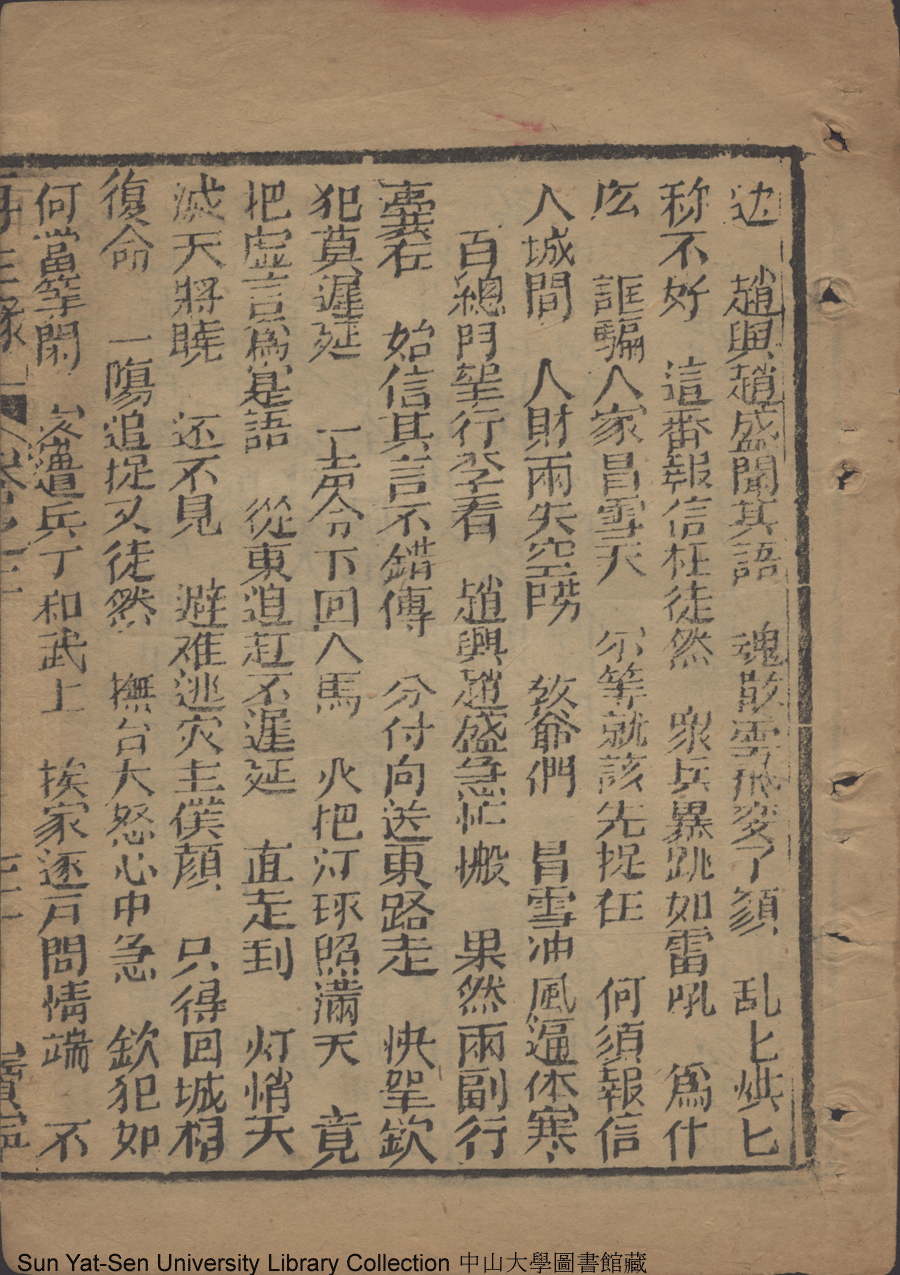 边　趙興趙盛聞其語　魂散雲飛变了顔　乱匕烘匕
称不好　這番報信枉徒然　衆兵暴跳如雷吼　爲什
広　誆騙人家昌雪天　尔等就該先捉住　何須報信
人城間　人財兩失空勞　教爺們　昌雪冲風逼体寒
百總門望行李看　趙興趙盛急忙搬　果然兩副行
囊在　始信其言不錯傳　分付向送東路走　快拏欽
犯莫遲延　一声令下回人馬　火把灯球照滿天　竟
把虚言爲寔語　從東追赶不遲延　直走到　灯悄天
滅天將曉　还不見　避难逃灾主僕顔　只得回城相
復命　一塲追捉又徒然　撫台大怒心中急　欽犯如
何當等閑　发遣兵丁和武士　挨家逐戸問情端　不
再生緣　卷之三
Sun Yat-Sen University Library Collection 中山大學圖書館藏